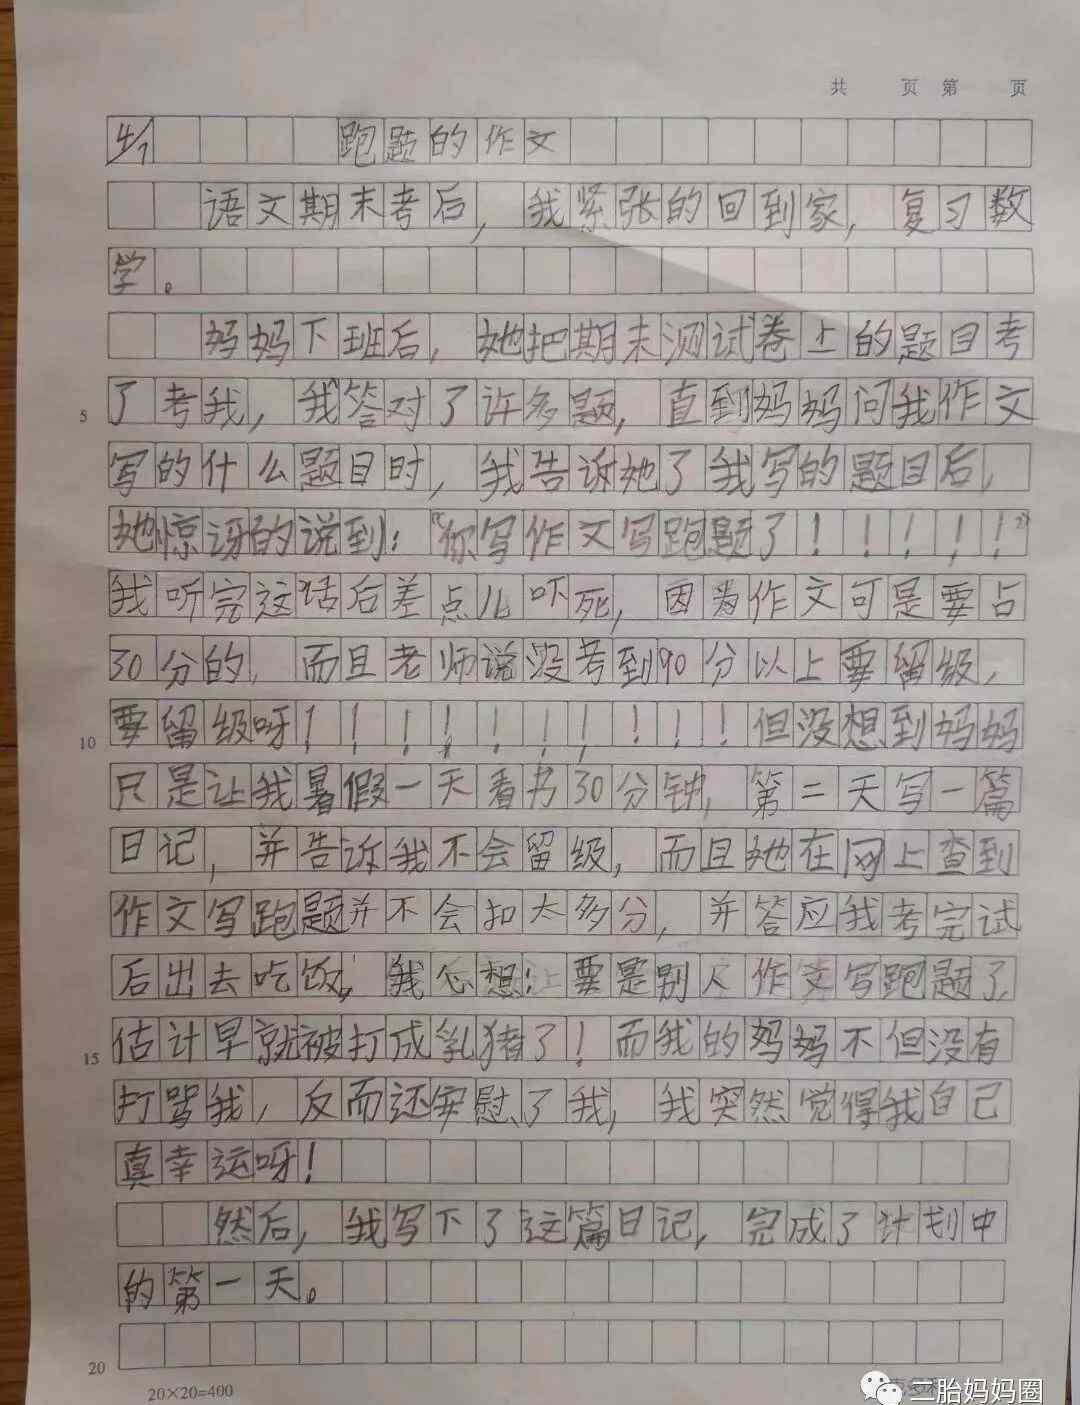 共 页 第 页
4/1 跑题的作文
语文期末考后，我紧张的回到家，复习数
学。
妈妈下班后，她把期末测试卷上的题目考
5 了考我，我答对了许多题，直到妈妈问我作文
写的什么题目时，我告诉她了我写的题目后，
她惊讶的说到：“你写作文写跑题了！！！！！”
我听完这话后差点儿吓死，因为作文可是要占
30分的，而且老师说没考到90分以上要留级，
10 要留级呀！！！！！！！！！！但没想到妈妈
只是让我暑假一天看书30分钟，第二天写一篇
日记，并告诉我不会留级，而且她在网上查到
作文写跑题并不会扣太多分，并答应我考完试
后出去吃饭，我心想：要是别人作文写跑题了，
15 估计早就被打成乳猪了！而我的妈妈不但没有
打骂我，反而还安慰了我，我突然觉得我自己
真幸运呀！
然后，我写下了这篇日记，完成了计划中
的第一天。
20
20×20=400
二胎妈妈圈